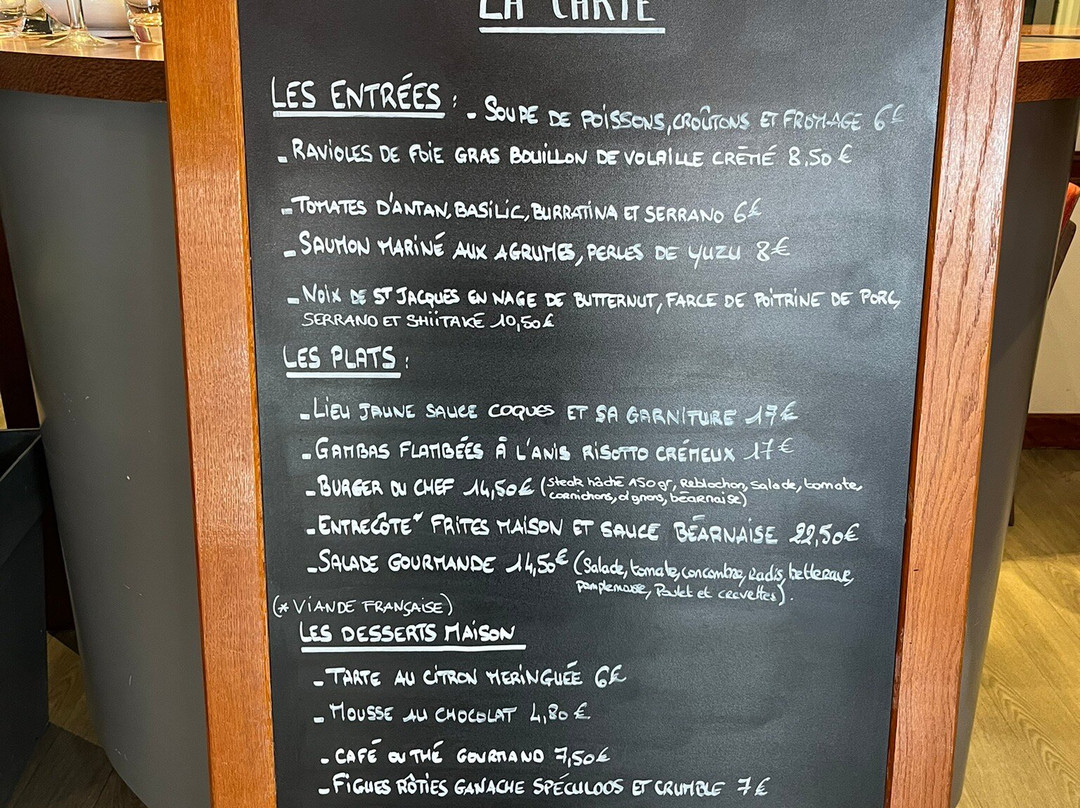 LA CARTE
LES ENTRÉES : - SOUPE DE POISSONS, CROÛTONS ET FROMAGE 6€
- RAVIOLES DE FOIE GRAS BOUILLON DE VOLAILLE CRÉMÉ 8,50 €
- TOMATES D'ANTAN, BASILIC, BURRATINA ET SERRANO 6€
- SAUMON MARINÉ AUX AGRUMES, PERLES DE YUZU 8€
- NOIX DE ST JACQUES EN NAGE DE BUTTERNUT, FARCE DE POITRINE DE PORC,
SERRANO ET SHIITAKÉ 10,50€
LES PLATS :
- LIEU JAUNE SAUCE COQUES ET SA GARNITURE 17€
- GAMBAS FLAMBÉES À L'ANIS RISOTTO CRÉMEUX 17€
- BURGER DU CHEF 14,50€ (steak haché 150gr, Reblochon, salade, tomate,
cornichons, oignons, béarnaise)
- ENTRECÔTE* FRITES MAISON ET SAUCE BÉARNAISE 22,50€
- SALADE GOURMANDE 14,50€ (Salade, tomate, concombre, Radis, betterave,
pamplemousse, Poulet et crevettes).
(* VIANDE FRANÇAISE)
LES DESSERTS MAISON
- TARTE AU CITRON MERINGUÉE 6€
- MOUSSE AU CHOCOLAT 4,80 €
- CAFÉ OU THÉ GOURMAND 7,50€
- FIGUES RÔTIES GANACHE SPÉCULOOS ET CRUMBLE 7€